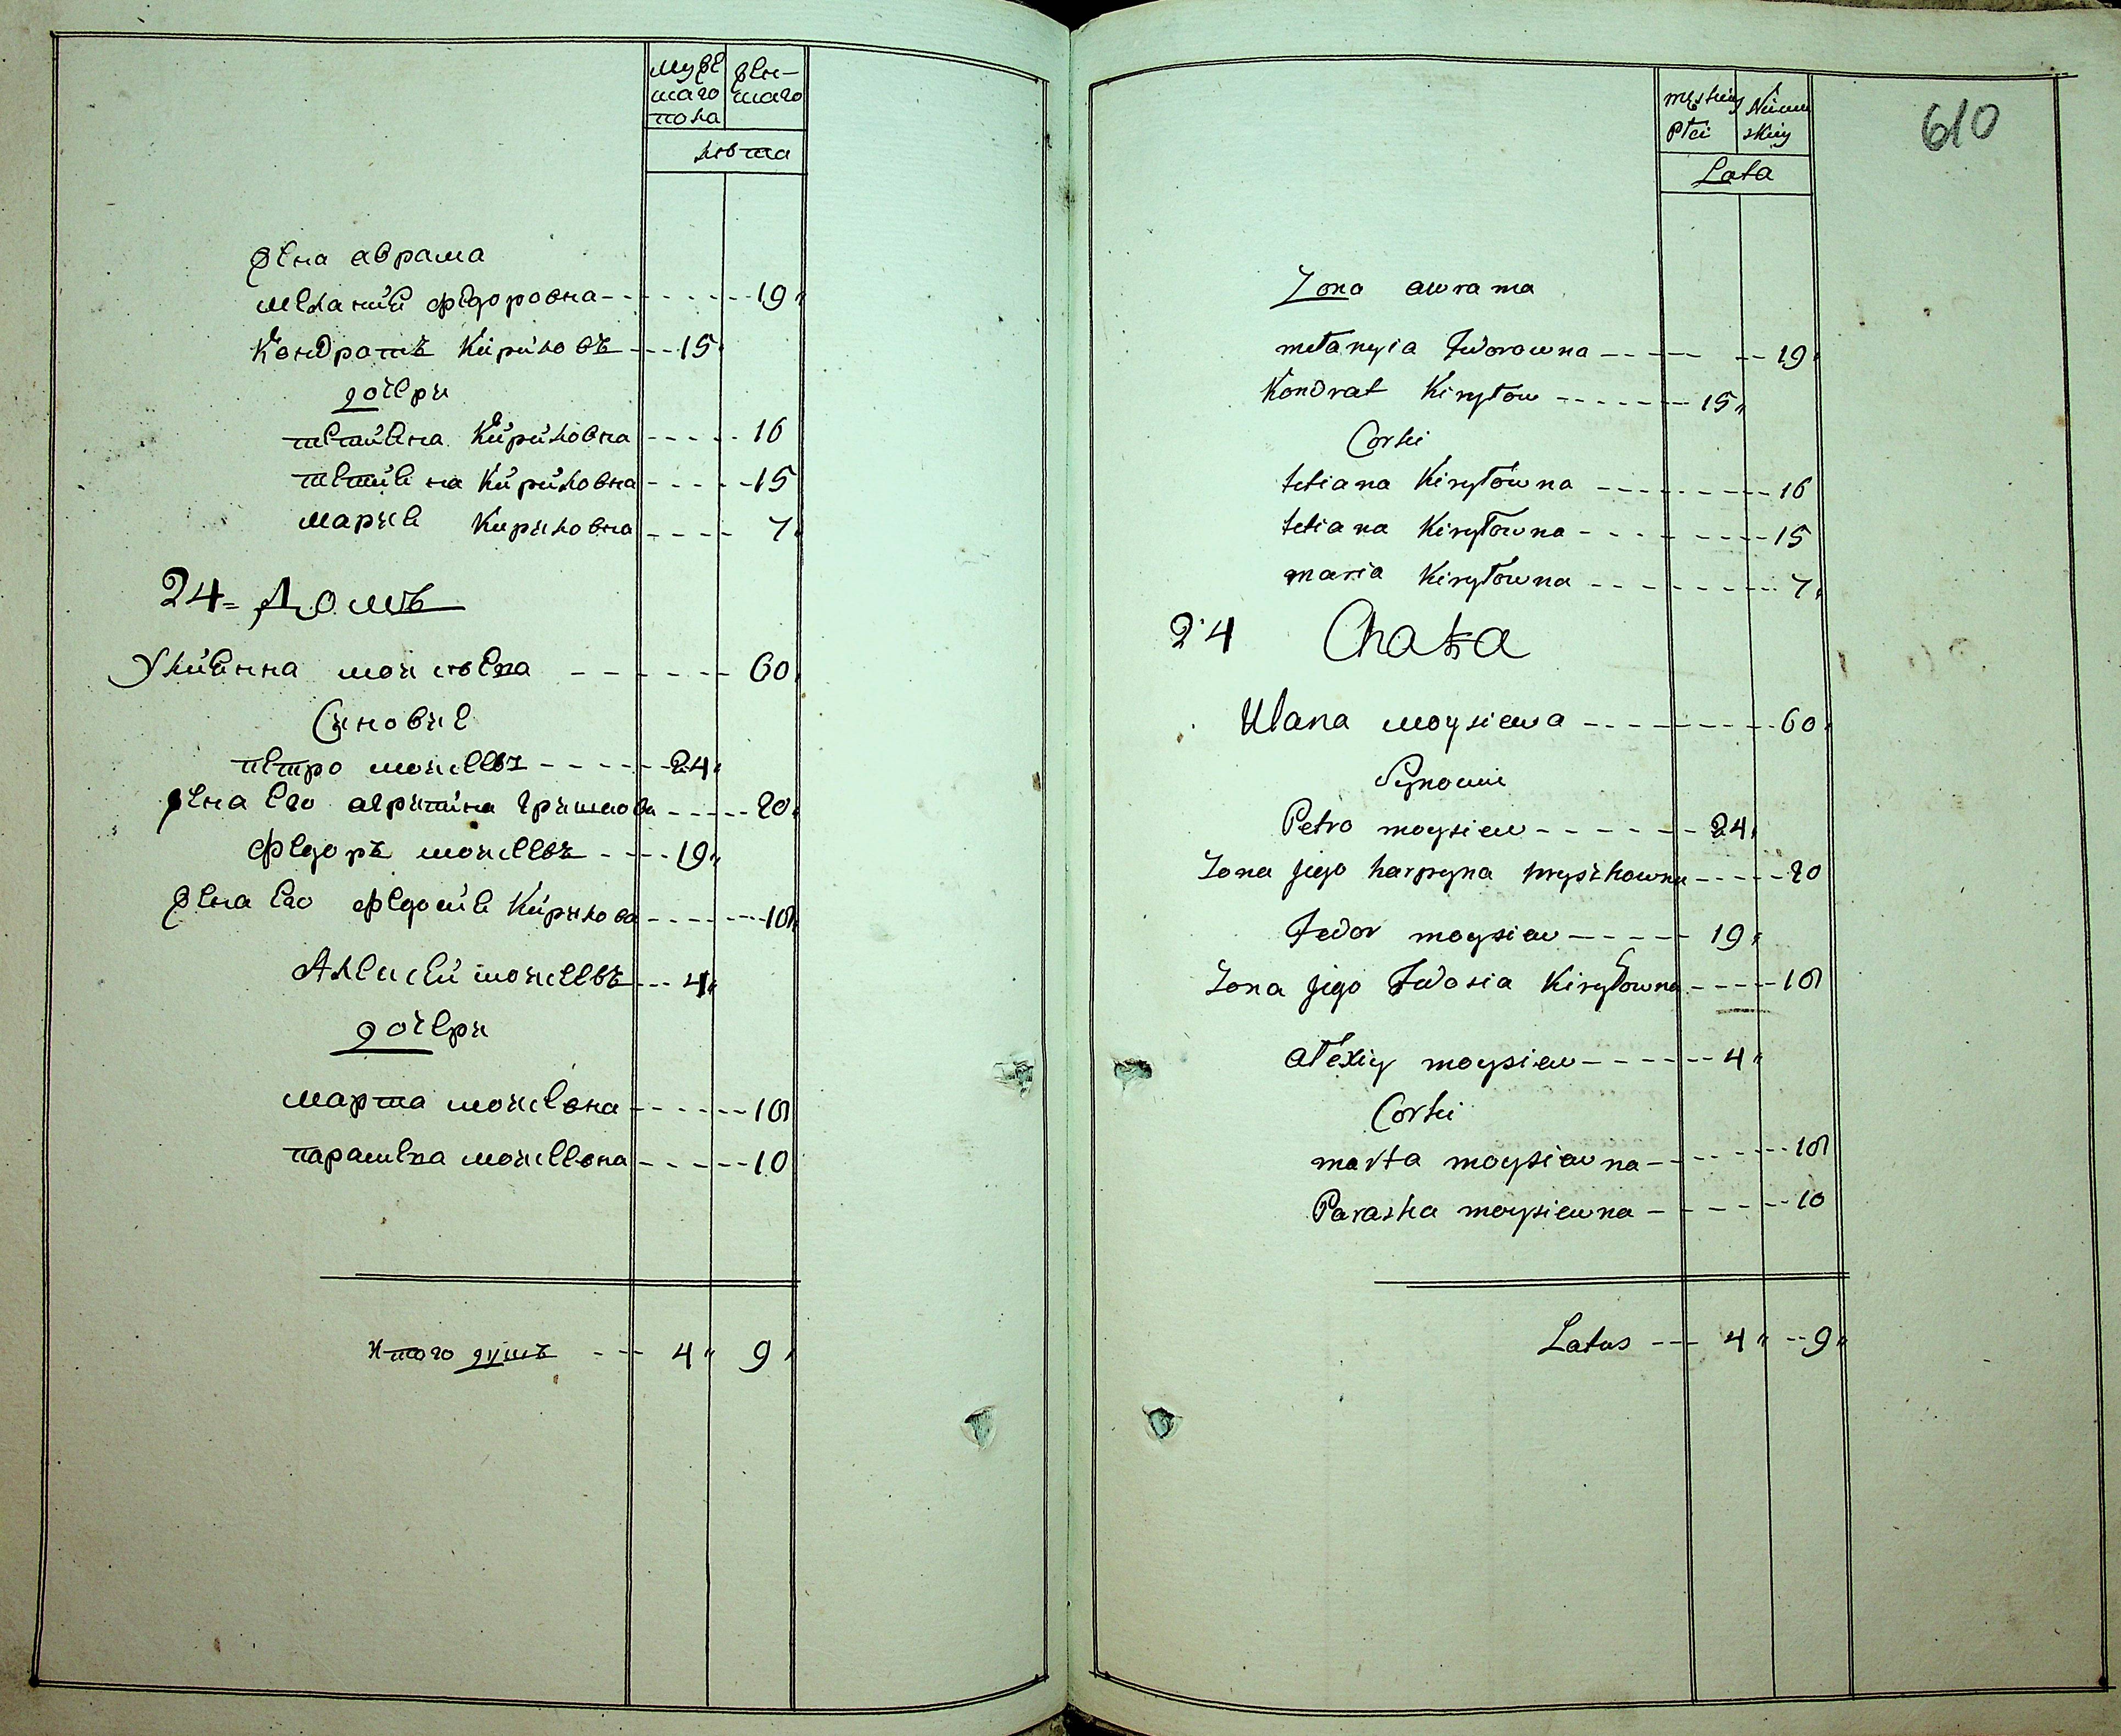 муже
скаго
пола
жен-
скаго
лѣта
жена аврама
меланиѣ федоровна - - - - - 19
Кондратъ Кириловъ - - - 15
дочери
тетиѣна Кириловна - - - - 16
тетиѣна Кириловна - - - - 15
мариѣ Кириловна - - - - 7
24 = Домъ
Улиѣнна
Синовие
петро моисеевъ - - - - - 24
жена его агрипина - - - - 20
федоръ моисеевъ - - - 19
жена его федосиѣ Кирилова - - - - 18
Алексей моисеевъ - - - 4
дочери
марта моисевна - - - - - 18
парашка моисеевна - - - - 10
итого душъ - - - 4 9
610
męskiey
Płci
Niewie
skiey
Lata
Zona awrama
mełanyia Fedorowna - - - - 19
Kondrat Kiryłow - - - - - 15
Corki
tetiana Kiryłowna - - - - - 16
tetiana Kiryłowna - - - - - 15
maria Kiryłowna - - - - - 7
24 Chata
Ulana moysiewa - - - - - 60
Synowie
Petro moysiew - - - - - 24
Zona jego harpyna hryszkowna - - - - 20
Fedor moysiew - - - - - 19
Zona jego Fedosia Kiryłowna - - - - 18
ałexiy moysiew - - - - - 4
Corki
marta moysiewna - - - - - 18
Paraska moysiewna - - - - - 10
Latus - - - 4 - - 9